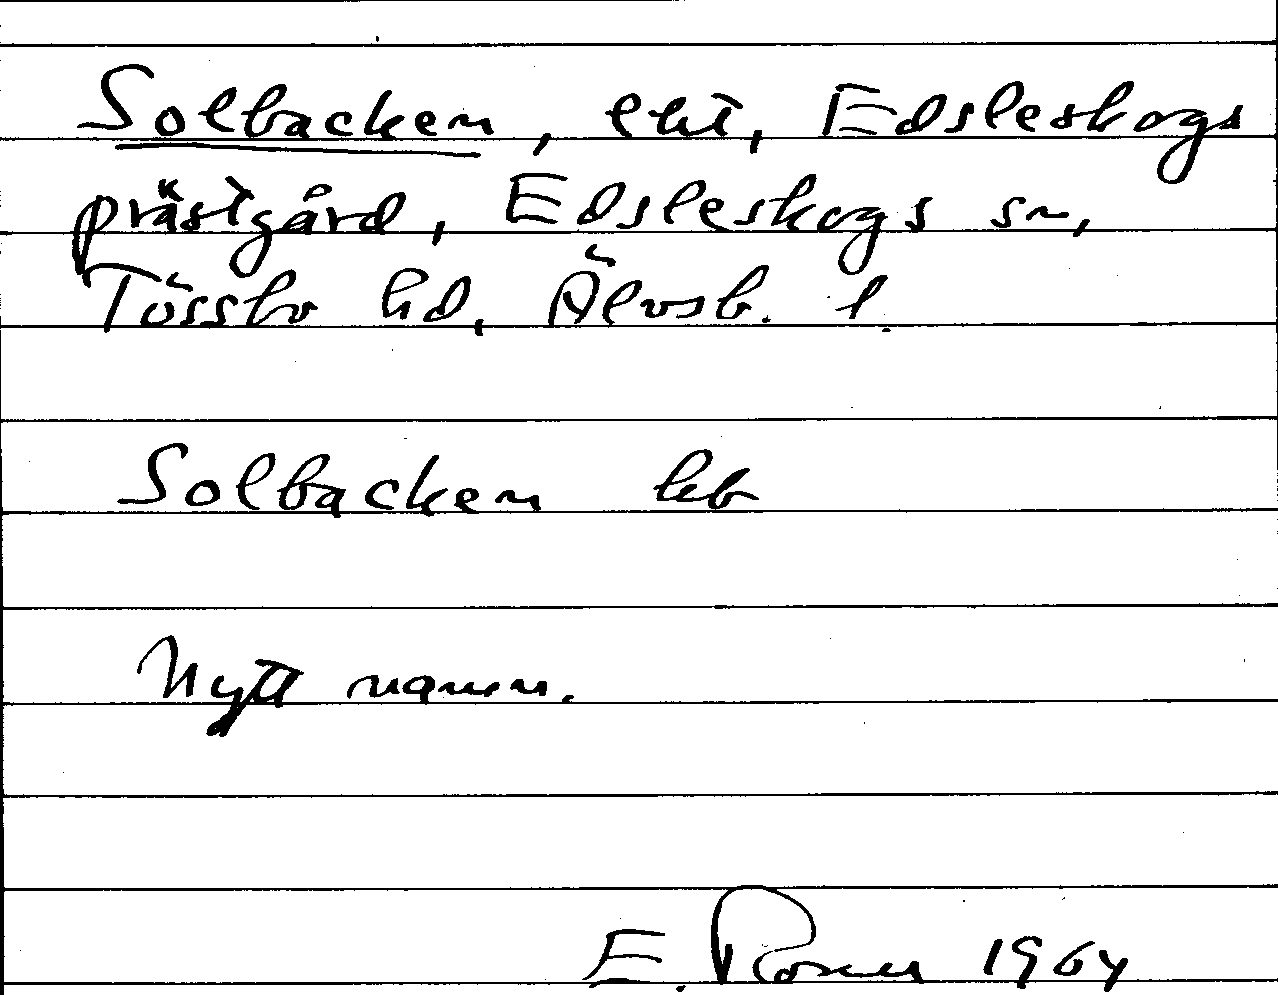 Solbacken, lht, Edsleskogs
prästgård, Edsleskogs sn,
Tössbo hd, Älvsb. l.
Solbacken kb
Nytt namn.
E. Rosner 1964